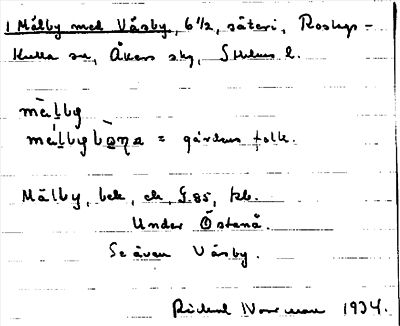 1 Målby med Våsby, 6 1/2, säteri, Roslags-
Kulla sn, Åkers skg, Sthlms l.
målby
målbybọna = gårdens folk.
Målby, bek, ek, G. 85, kb.
Under Östanå.
Se även Våsby.
Rickard Norrman 1934.